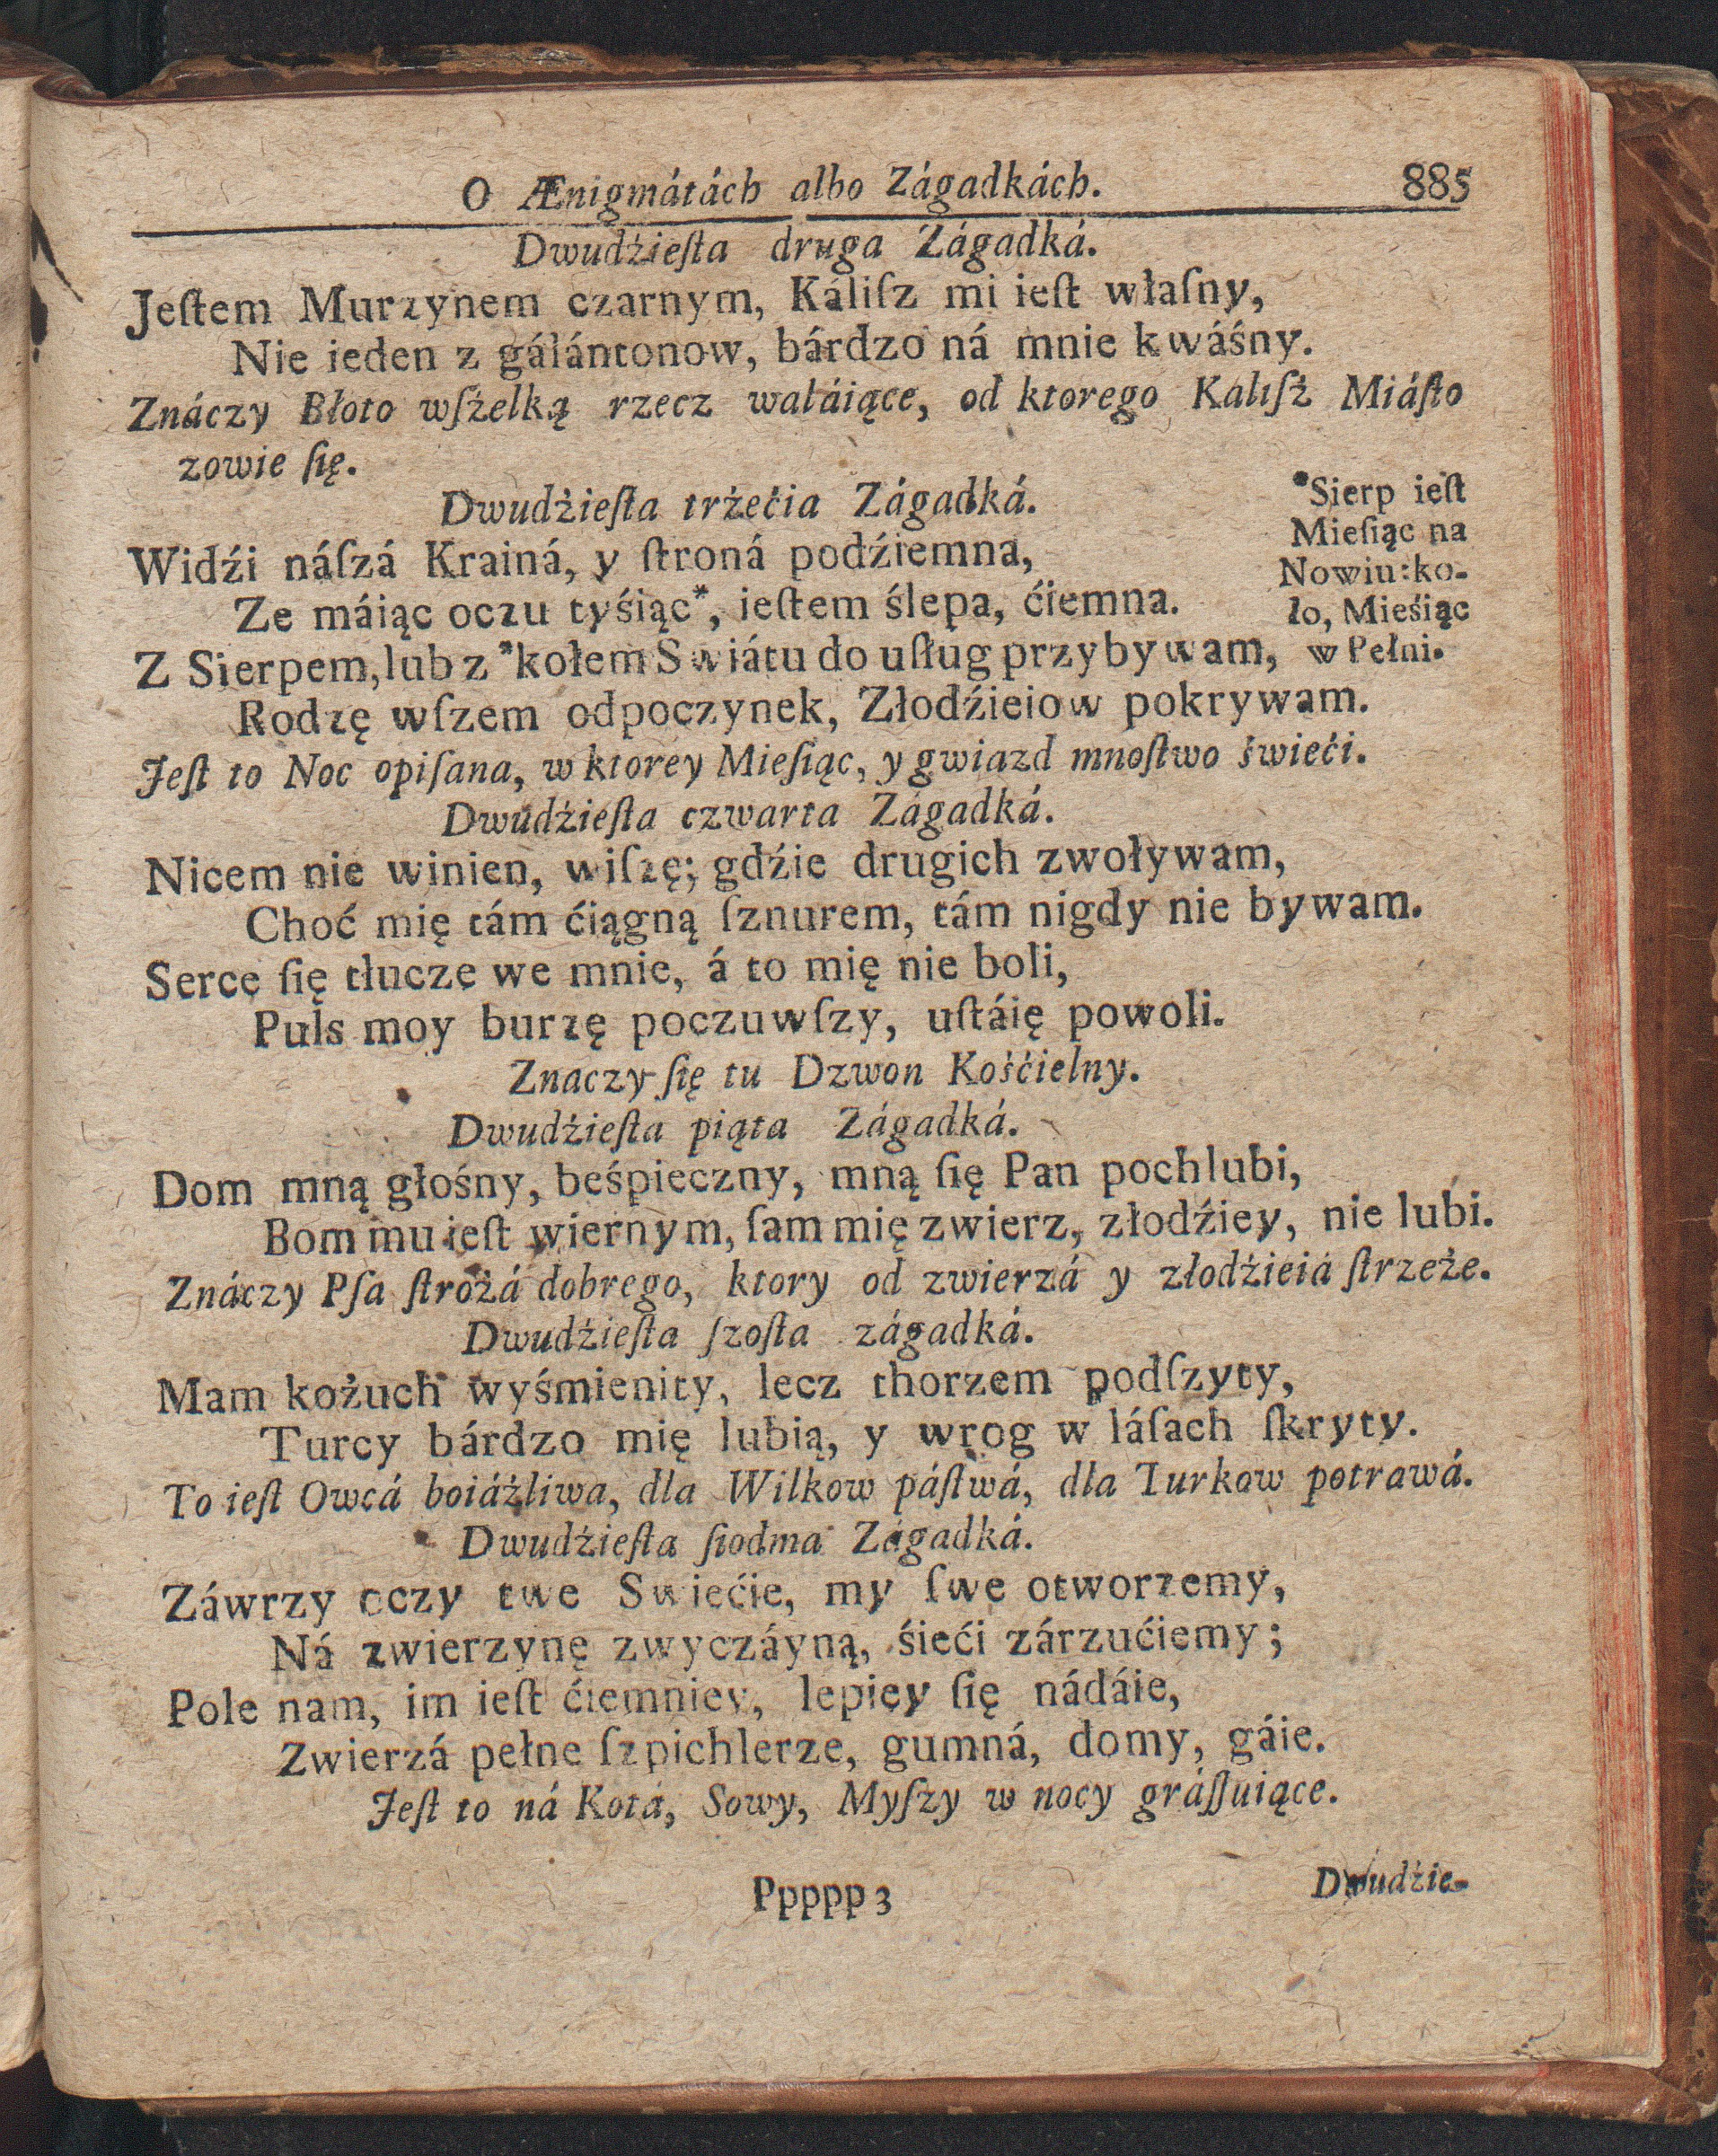 O Ænigmátách albo Zágadkách. 885
Dwudźieſta druga Zágadká.
Jeſtem Murzynem czarnym, Káliſz mi ieſt właſny,
Nie ieden z gálántonow, bárdzo ná mnie kwáśny.
Znáczy Błoto wſżelką rzecz waláiące, od ktorego Kaliſż Miáſto
zowie ſię.
Dwudźieſta trżećia Zágadká.
Widźi náſzá Krainá, y ſtroná podźiemna,
Ze máiąc oczu tyśiąc*, ieſtem ślepa, ćiemna.
Z Sierpem, lub z *kołem Swiátu do uſług przybywam,
Rodzę wſzem odpoczynek, Złodźieiow pokrywam.
*Sierp ieſt
Mieſiąc na
Nowiu: ko-
ło, Mieśiąc
w Pełni.
Jeſt to Noc opiſana, w ktorey Mieſiąc, y gwiazd mnoſtwo świeći.
Dwudźieſta czwarta Zágadká.
Nicem nie winien, wiſzę; gdźie drugich zwoływam,
Choć mię tám ćiągną ſznurem, tám nigdy nie bywam.
Serce ſię tłucze we mnie, á to mię nie boli,
Puls moy burzę poczuwſzy, uſtáię powoli.
Znaczy ſię tu Dzwon Kośćielny.
Dwudźieſta piąta Zágadká.
Dom mną głośny, beśpieczny, mną ſię Pan pochlubi,
Bom mu ieſt wiernym, ſam mię zwierz, złodźiey, nie lubi.
Znáczy Pſa ſtrożá dobrego, ktory od zwierzá y złodźieiá ſtrzeże.
Dwudźieſta ſzoſta zágadká.
Mam kożuch wyśmienity, lecz thorzem podſzyty,
Turcy bárdzo mię lubią, y wrog w láſach ſkryty.
To ieſt Owcá boiáźliwa, dla Wilkow páſtwá, dla Turkow potrawá.
Dwudźieſta ſiodma Zágadká.
Záwrzy oczy twe Swiećie, my ſwe otworzemy,
Ná zwierzynę zwyczáyną, śieći zárzućiemy;
Pole nam, im ieſt ćiemniey, lepiey ſię nádáie,
Zwierzá pełne ſzpichlerze, gumná, domy, gáie.
Jeſt to ná Kotá, Sowy, Myſzy w nocy gráſſuiące.
Ppppp 3 Dwudźie-